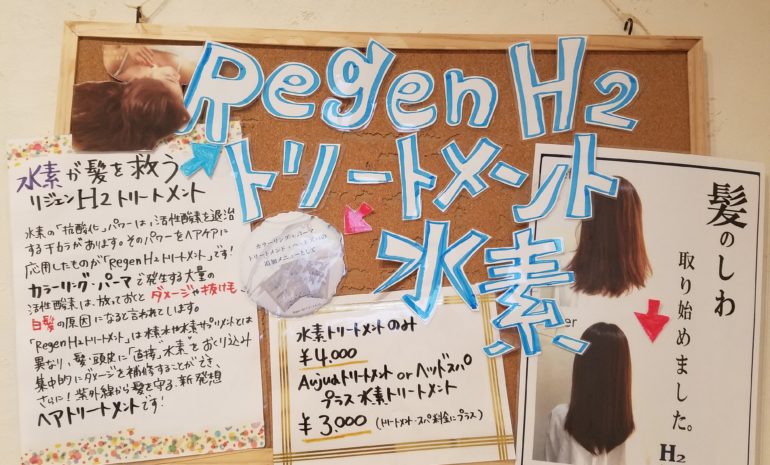 Regen H2
トリートメント
水素
水素が髪を救う
リジェンH2トリートメント
水素の「抗酸化」パワーは、活性酸素を退治
するチカラがあります。そのパワーをヘアケアに
応用したものが「Regen H2トリートメント」です!
カラーリング・パーマで発生する大量の
活性酸素は、放っておくと ダメージや抜け毛
白髪の原因になると言われてします。
「Regen H2トリートメント」は水素水や水素サプリメントとは
異なり、髪・頭皮に「直接」水素をおくり込み
集中的にダメージを補修することができ、
さらに!紫外線から髪を守る、新発想
ヘアトリートメントです!
カラーリング・パーマ
トリートメント・ヘッドスパの
追加メニューとして
水素トリートメントのみ
¥4,000
Aujuaトリートメント or ヘッドスパ
プラス水素トリートメント
¥3,000 (トリートメント・スパ料金にプラス)
髪のしわ
取り始めました。
H2
er